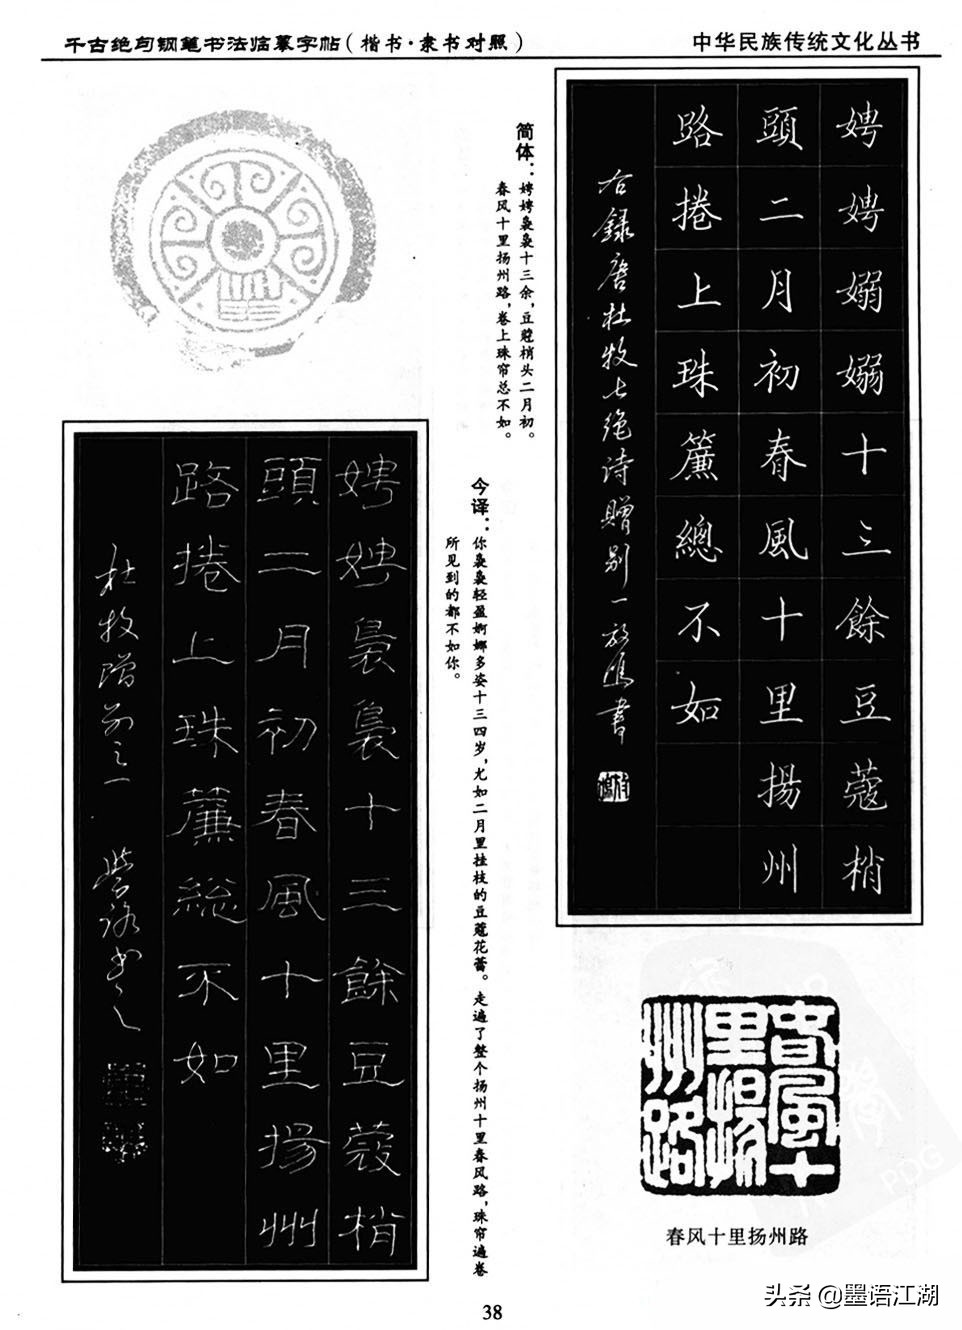 千古绝句钢笔书法临摹字帖(楷书·隶书对照)
中华民族传统文化丛书
娉娉嫋嫋十三餘豆蔻梢
頭二月初春風十里揚州
路捲上珠簾總不如
右錄唐杜牧七绝诗贈别一 放鴻書
简体:娉娉袅袅十三余,豆蔻梢头二月初。
春风十里扬州路,卷上珠帘总不如。
今译:你袅袅轻盈婀娜多姿十三四岁,尤如二月里挂枝的豆蔻花蕾。走遍了整个扬州十里春风路,珠帘遍卷
所见到的都不如你。
娉娉裊裊十三餘豆蔻梢
頭二月初春風十里揚州
路捲上珠簾総不如
杜牧贈别之一
春風十
里揚
州路
春风十里扬州路
38
头条 @墨语江湖
PDG